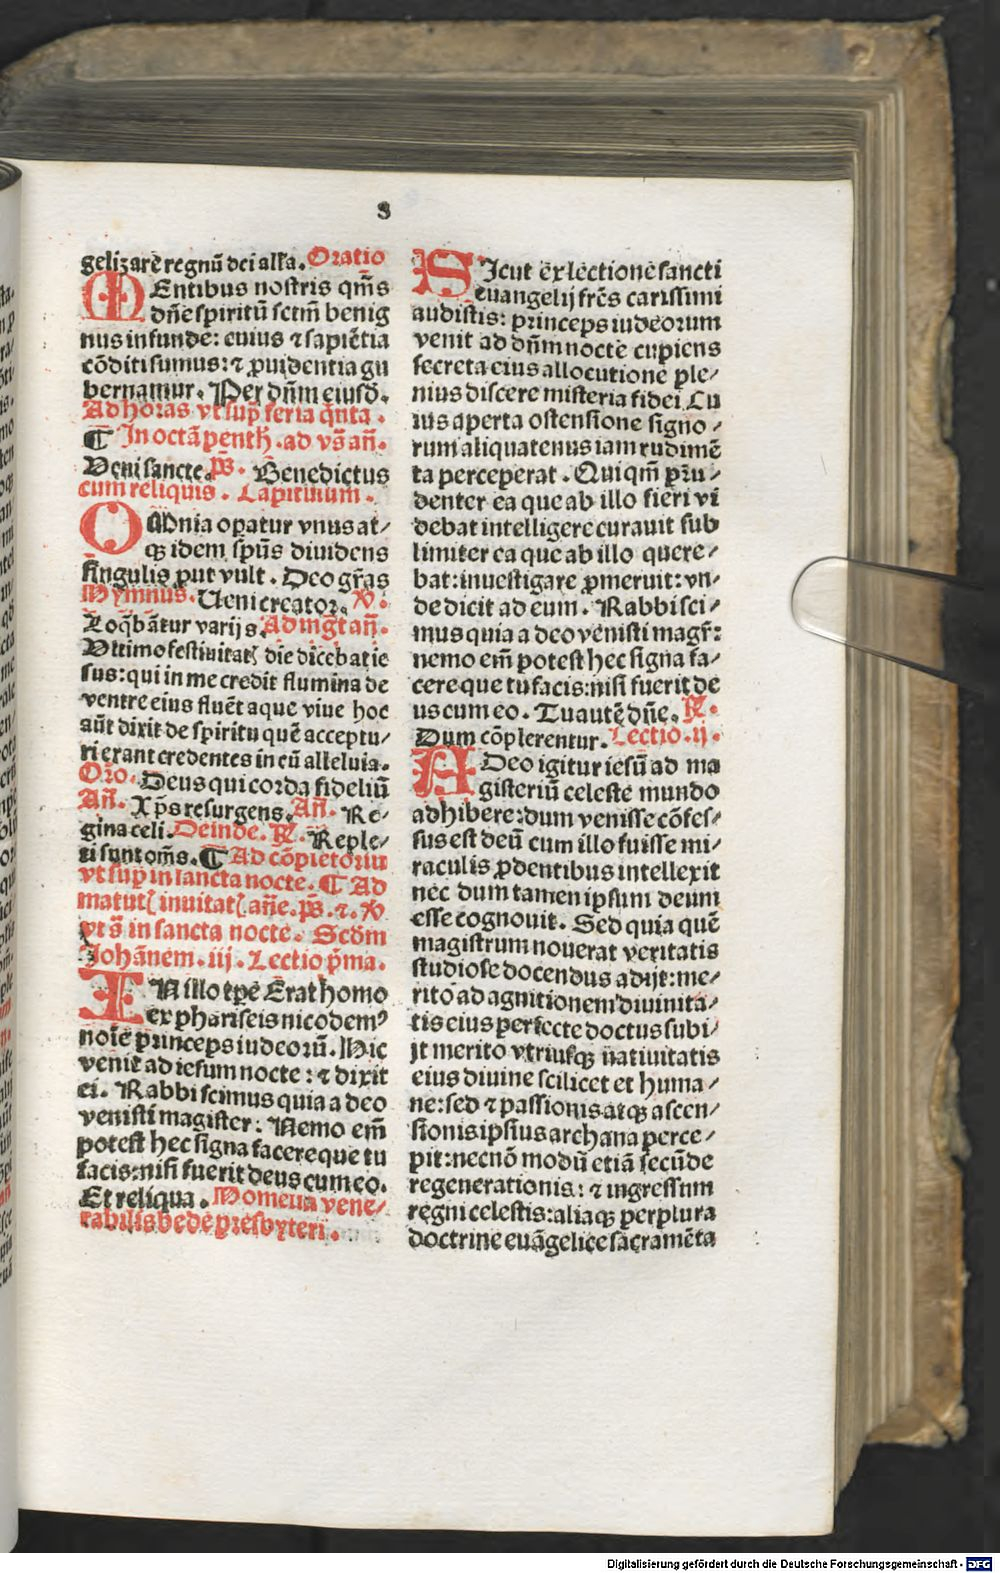 8
gelizare regnū dei alľa. Oratio
MEntibus nostris qm̄s
dn̄e spiritū sctm̄ benig
nus infunde: cuius ⁊ sapiētia
cōditi sumus: ⁊ ꝓuidentia gu
bernamur. Per dn̄m eiusd̄.
Ad horas vt sup̄ feria q̄nta.
¶ In octā penth̄. ad vs̄ an̄.
Veni sancte. ps̄. Benedictus
cum reliquis. Capitulum.
OMnia oꝑatur vnus at⸗
qꝫ idem sp̄us diuidens
singulis ꝓut vult. Deo gr̄as
Hymnus. Veni creator. V̄.
Loq̄bātur varijs. Ad mḡt an̄.
Vltimo festiuitatꝭ die dicebat ie
sus: qui in me credit flumina de
ventre eius fluēt aque viue hoc
aūt dixit de spiritu quē acceptu⸗
ri erant credentes in eū alleluia.
Oro. Deus qui corda fideliū
An̄. Xp̄s resurgens. An̄. Re⸗
gina celi. Deinde. R̄. Reple⸗
ti sunt om̄s. ¶ Ad cōpletoriū
vt sup̄ in sancta nocte. ¶ Ad
matutꝭ inuitatꝭ an̄e. ps̄. ⁊. V̄
vt s̄ in sancta nocte. Scdm
Johānem. iij. Lectio p̄ma.
IN illo tp̄e Erat homo
ex phariseis nicodemꝰ
noīe princeps iudeorū. Hic
venit ad iesum nocte: ⁊ dixit
ei. Rabbi scimus quia a deo
venisti magister: Nemo em̄
potest hec signa facere que tu
facis: nisi fuerit deus cum eo.
Et reliqua. Homelia vene⸗
rabilis bede presbyteri.
SIcut ex lectione sancti
euangelij fr̄es carissimi
audistis: princeps iudeorum
venit ad dn̄m nocte cupiens
secreta eius allocutione ple⸗
nius discere misteria fidei. Cu
ius aperta ostensione signo⸗
rum aliquatenus iam rudimē
ta perceperat. Qui qm̄ pru⸗
denter ea que ab illo fieri vi
debat intelligere curauit sub
limiter ea que ab illo quere⸗
bat: inuestigare ꝓmeruit: vn⸗
de dicit ad eum. Rabbi sci⸗
mus quia a deo venisti magr̄:
nemo em̄ potest hec signa fa⸗
cere que tu facis: nisi fuerit de
us cum eo. Tu autē dn̄e. R̄.
Dum cōplerentur. Lectio. ij.
ADeo igitur iesū ad ma
gisteriū celeste mundo
adhibere: dum venisse cōfes⸗
sus est deū cum illo fuisse mi⸗
raculis ꝓdentibus intellexit
nec dum tamen ipsum deum
esse cognouit. Sed quia quē
magistrum nouerat veritatis
studiose docendus adijt: me⸗
rito ad agnitionem diuinita⸗
tis eius perfecte doctus subi⸗
jt merito vtriusqꝫ natiuitatis
eius diuine scilicet et huma⸗
ne: sed ⁊ passionis atqꝫ ascen⸗
sionis ipsius archana perce⸗
pit: necnō modū etiā secūde
regenerationis: ⁊ ingressum
regni celestis: aliaqꝫ perplura
doctrine euāgelice sacramēta
Digitalisierung gefördert durch die Deutsche Forschungsgemeinschaft - DFG